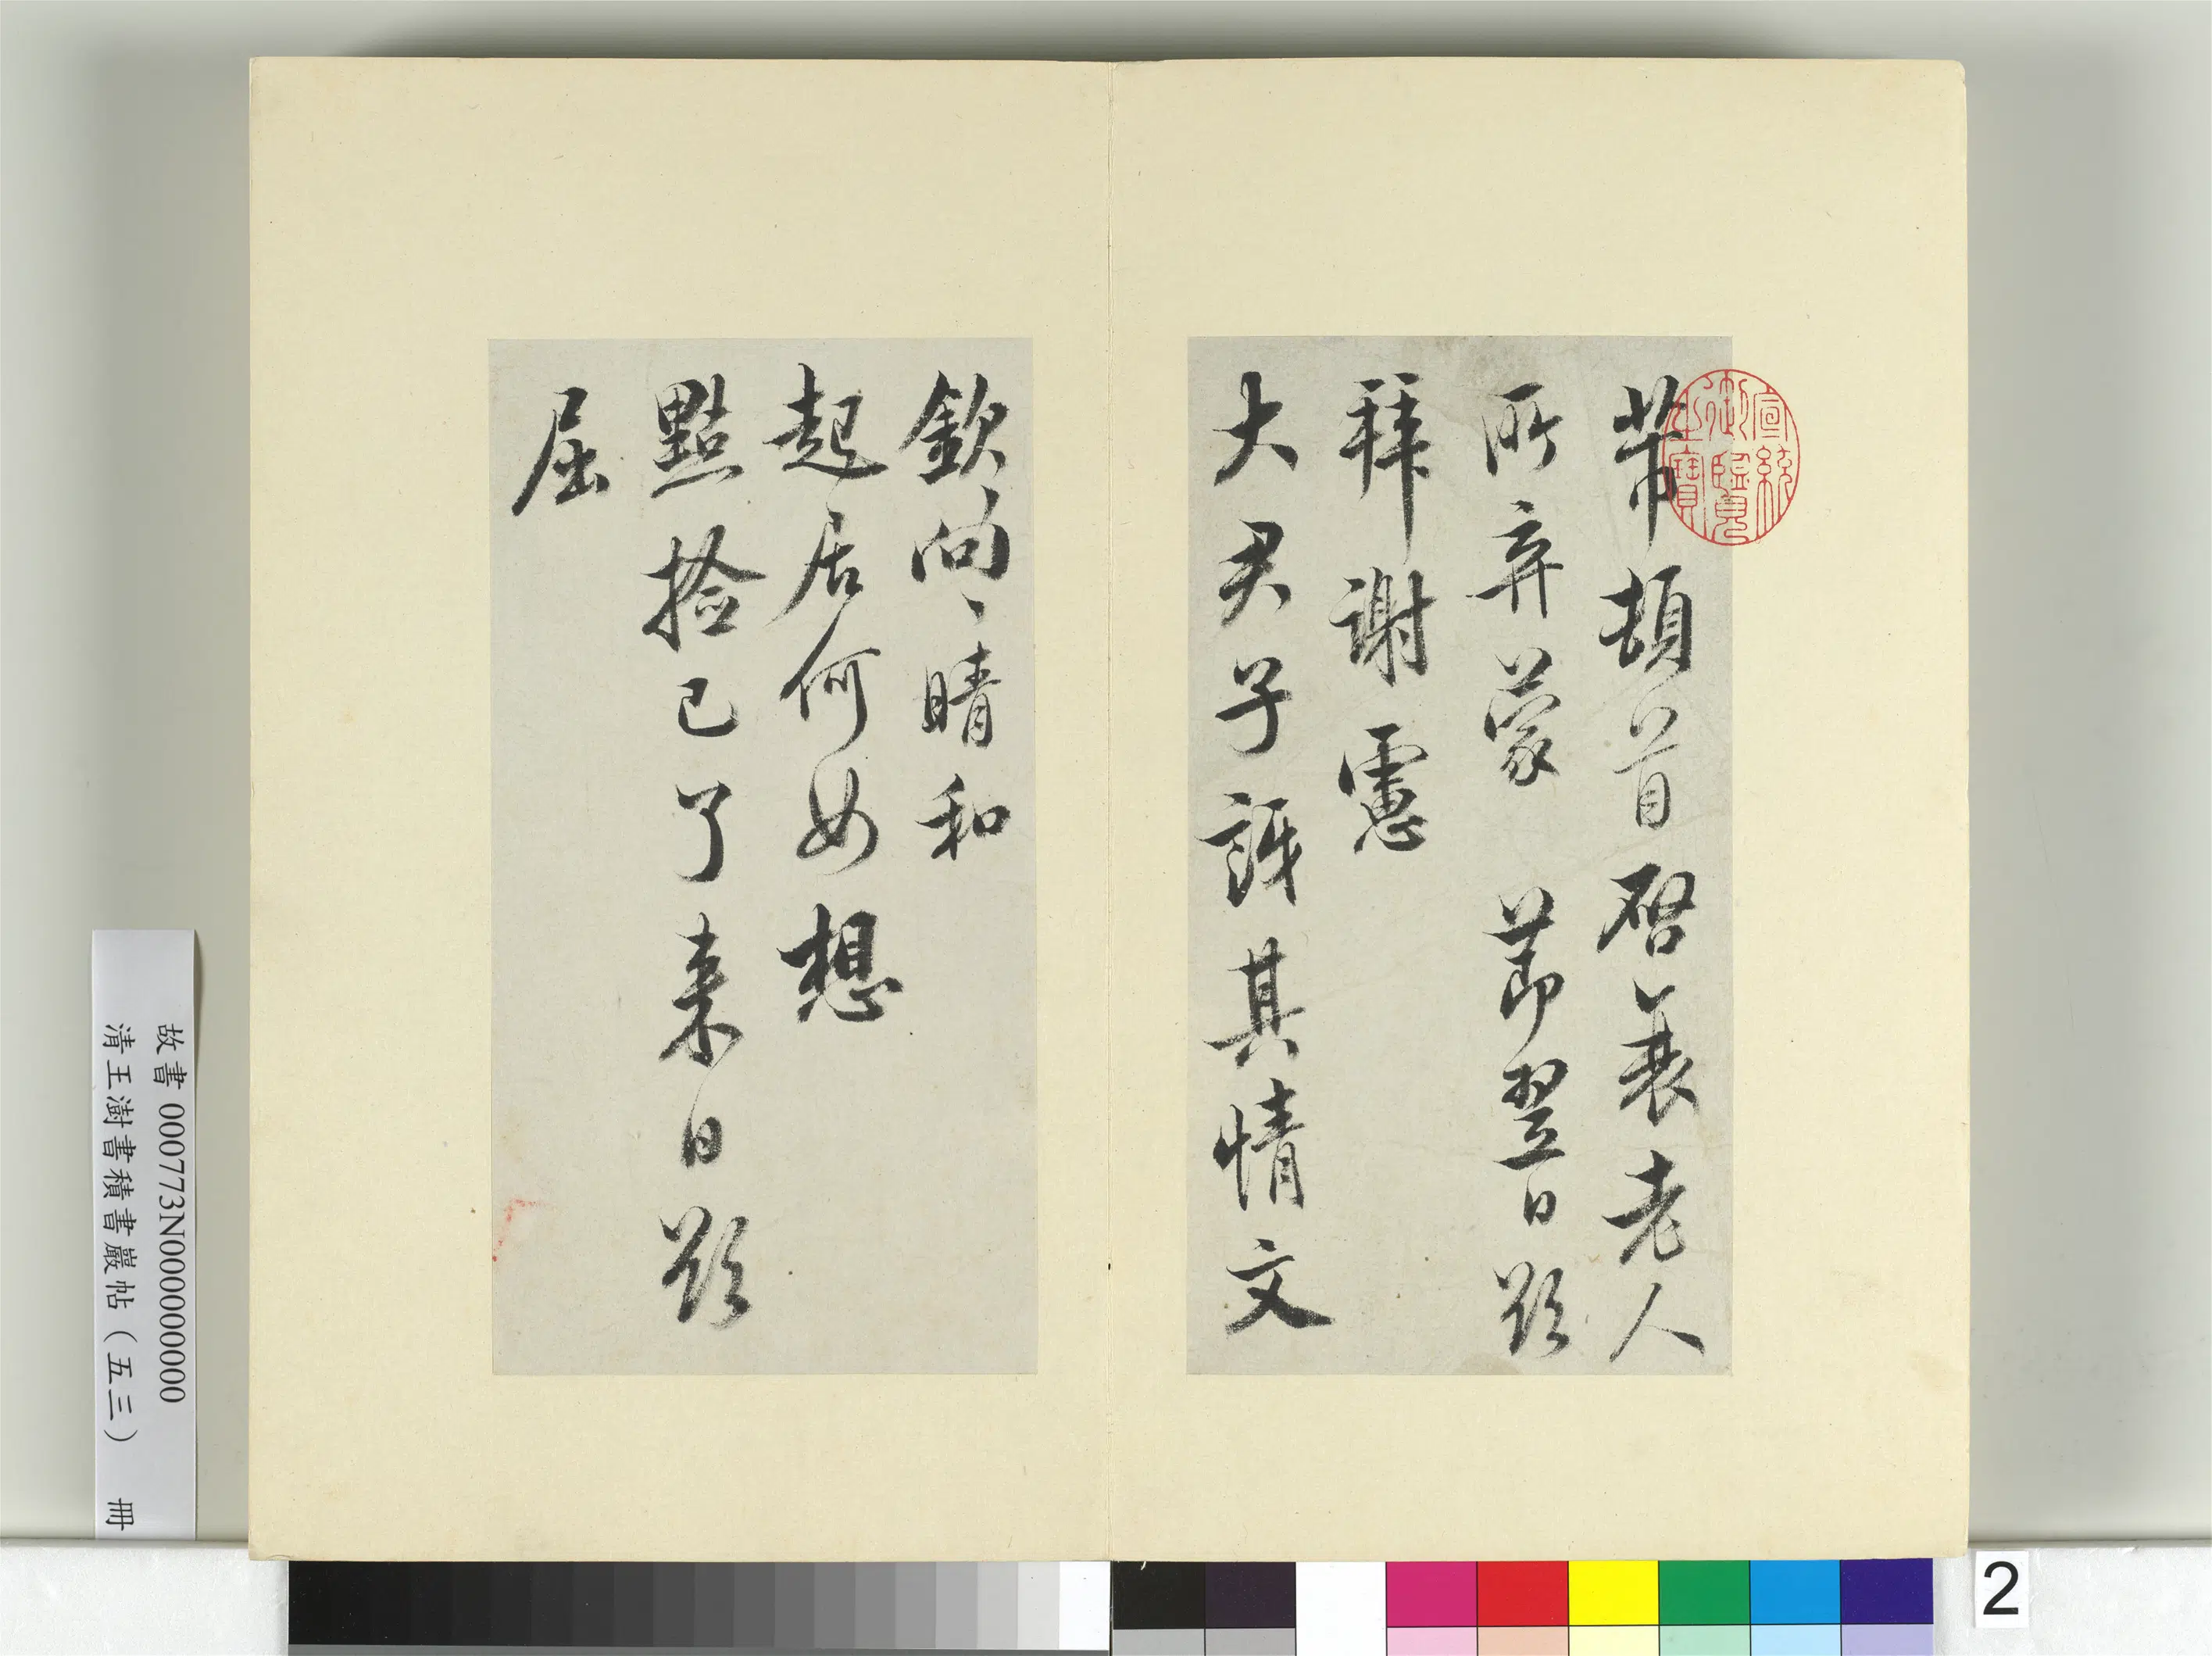 芾頓首啓襄老人
所弃蒙 節翌日欵
拜謝憲
大君子訝其情文
欽向〻晴和
起居何如想
點撿已了来日欵
屈
宣統御覽之寶
故書 000773N000000000
清王澍書積書巖帖(五三) 冊
2